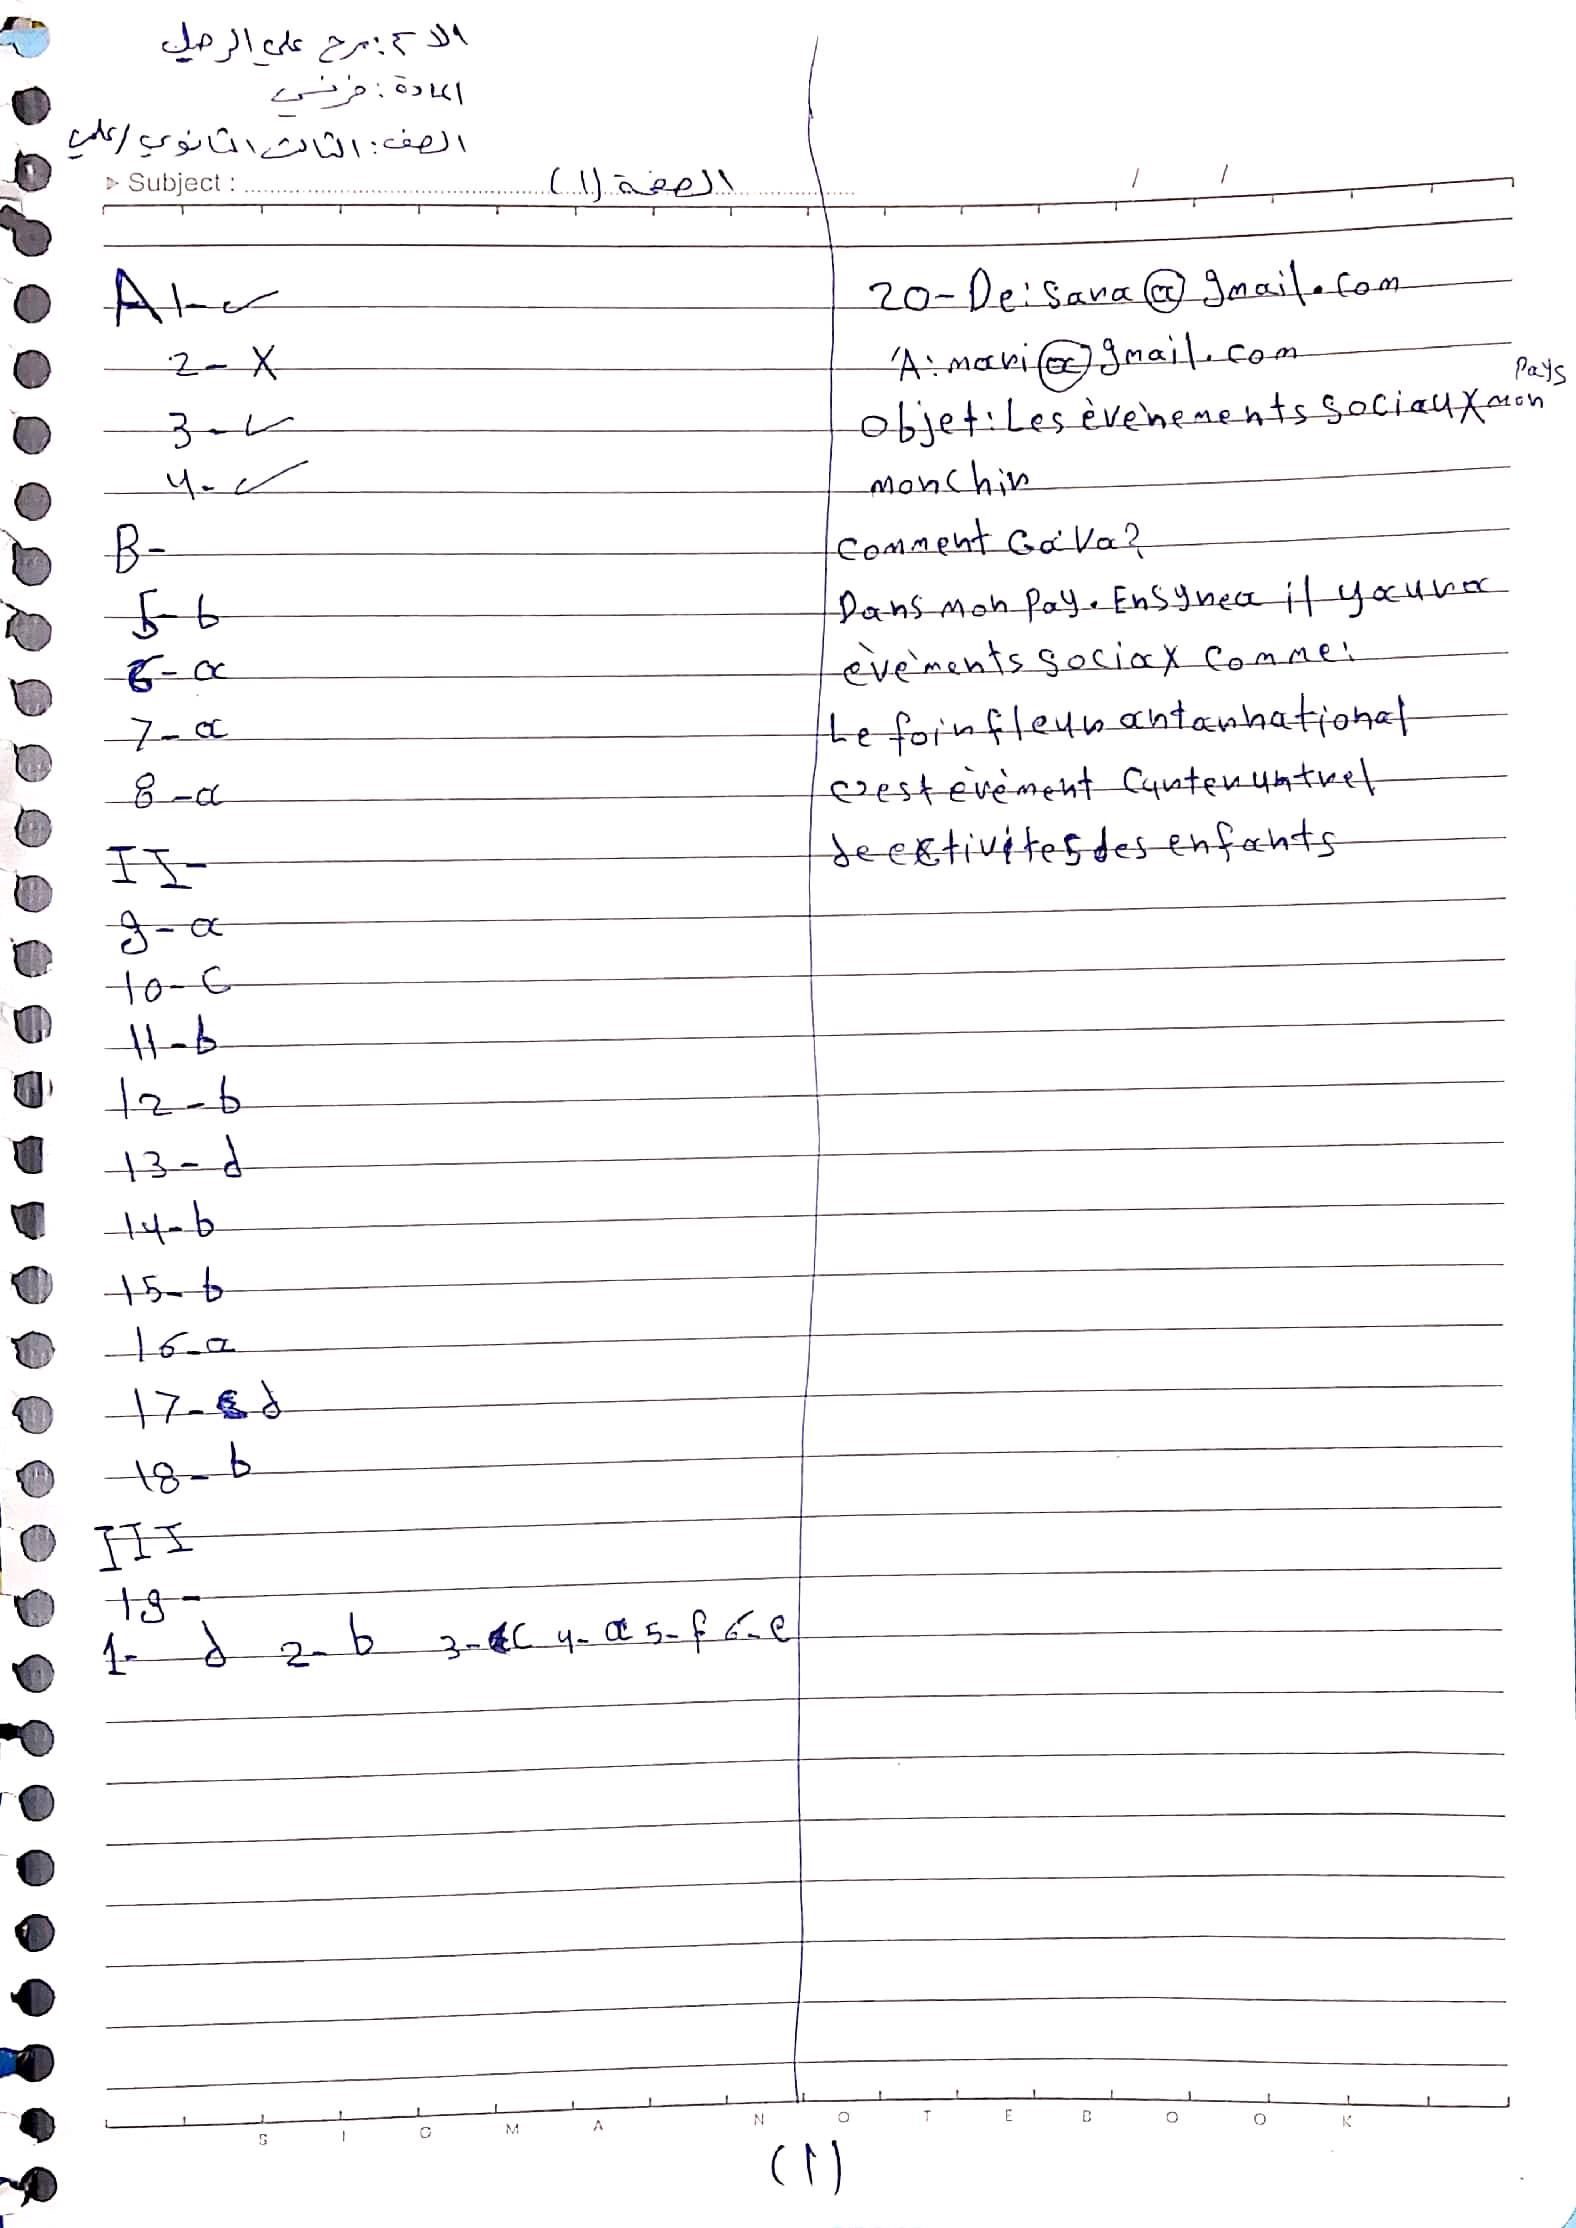 الاسم: مرح علي الرحيل
المادة: فرنسي
الصف: الثالث الثانوي / علمي
Subject :
الصفحة (١)
/ /
A 1- ✓
2- X
3- ✓
4- ✓
B-
5- b
6- a
7- a
8- a
II-
9- a
10- C
11- b
12- b
13- d
14- b
15- b
16- a
17- d
18- b
III
19-
1- d 2- b 3- C 4- a 5- f 6- e
20- De: Sara@gmail.com
'A: mari@gmail.com
Objet: Les èvènements sociaux mon Pays
mon Chir
Comment Ga Va?
Dans mon Pay. En Syrea il ya una
èvèments sociax Comme:
Le foir fleur antarnational
c'est èvèment
de extivites des enfants
SIGMA NOTEBOOK
(١)